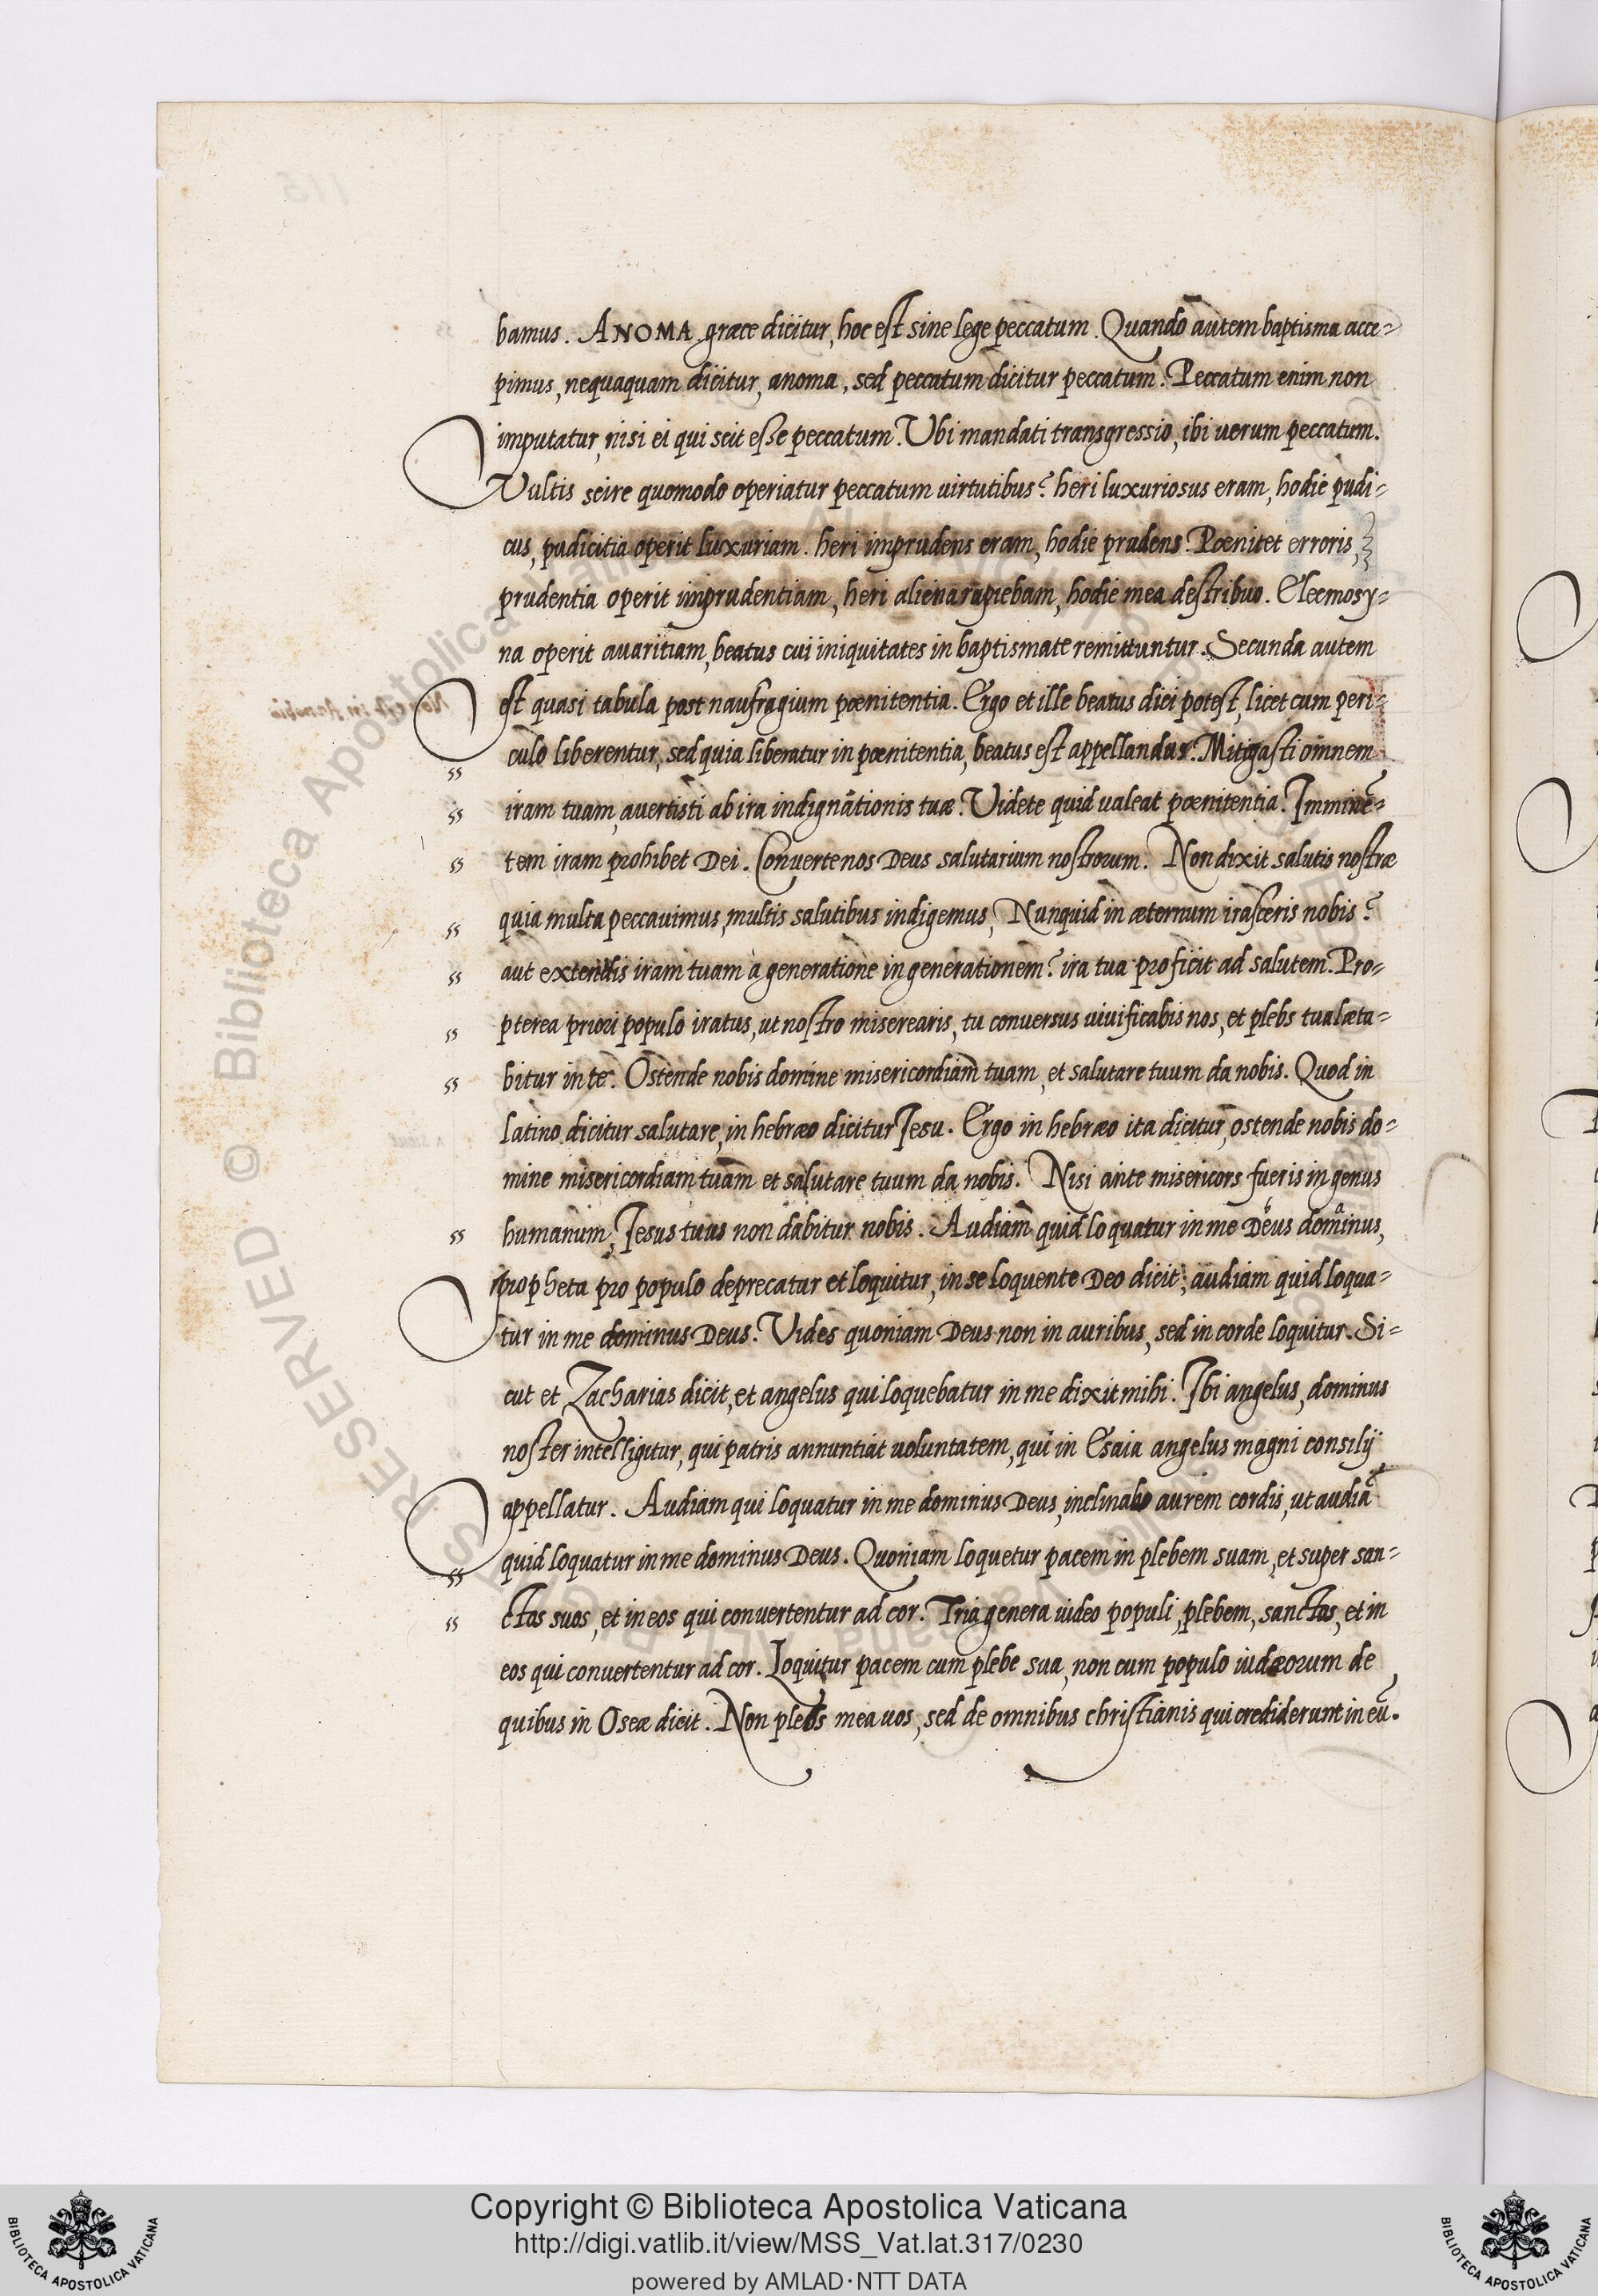 bamus. ANOMA græce dicitur, hoc est sine lege peccatum. Quando autem baptisma acce-
pimus, nequaquam dicitur, anoma, sed peccatum dicitur peccatum. Peccatum enim non
imputatur, nisi ei qui scit esse peccatum. Ubi mandati transgressio, ibi uerum peccatum.
Vultis scire quomodo operiatur peccatum uirtutibus? heri luxuriosus eram, hodie pudi-
cus, pudicitia operit luxuriam. heri imprudens eram, hodie prudens. Pœnitet erroris,
prudentia operit imprudentiam, heri aliena rapiebam, hodie mea destribuo. Eleemosy-
na operit auaritiam, beatus cui iniquitates in baptismate remittuntur. Secunda autem
est quasi tabula post naufragium pœnitentia. Ergo et ille beatus dici potest, licet cum peri-
culo liberentur, sed quia liberatur in pœnitentia, beatus est appellandus. Mitigasti omnem
iram tuam, auertisti ab ira indignationis tuæ. Videte quid ualeat pœnitentia. Imminē-
tem iram prohibet Dei. Conuerte nos Deus salutarium nostrorum. Non dixit salutis nostræ
quia multa peccauimus, multis salutibus indigemus, Nunquid in æternum irasceris nobis?
aut extendis iram tuam à generatione in generationem? ira tua proficit ad salutem. Pro-
pterea priori populo iratus, ut nostro miserearis, tu conuersus uiuificabis nos, et plebs tua læta-
bitur in te. Ostende nobis domine misericordiam tuam, et salutare tuum da nobis. Quod in
latino dicitur salutare, in hebræo dicitur Jesu. Ergo in hebræo ita dicitur, ostende nobis do-
mine misericordiam tuam et salutare tuum da nobis. Nisi ante misericors fueris in genus
humanum, Jesus tuus non dabitur nobis. Audiam quid loquatur in me Deus dominus,
propheta pro populo deprecatur et loquitur, in se loquente Deo dicit; audiam quid loqua-
tur in me dominus Deus. Vides quoniam Deus non in auribus, sed in corde loquitur. Si-
cut et Zacharias dicit, et angelus qui loquebatur in me dixit mihi. Ibi angelus, dominus
noster intelligitur, qui patris annuntiat uoluntatem, qui in Esaia angelus magni consilij
appellatur. Audiam qui loquatur in me dominus Deus, inclinabo aurem cordis, ut audiā
quid loquatur in me dominus Deus. Quoniam loquetur pacem in plebem suam, et super san-
ctos suos, et in eos qui conuertentur ad cor. Tria genera uideo populi, plebem, sanctos, et in
eos qui conuertentur ad cor. Loquitur pacem cum plebe sua, non cum populo iudæorum de
quibus in Oseæ dicit. Non plebs mea uos, sed de omnibus christianis qui crediderunt in eū.
© Biblioteca Apostolica Vaticana
RESERVED
Copyright © Biblioteca Apostolica Vaticana
http://digi.vatlib.it/view/MSS_Vat.lat.317/0230
powered by AMLAD·NTT DATA
BIBLIOTECA APOSTOLICA VATICANA
BIBLIOTECA APOSTOLICA VATICANA